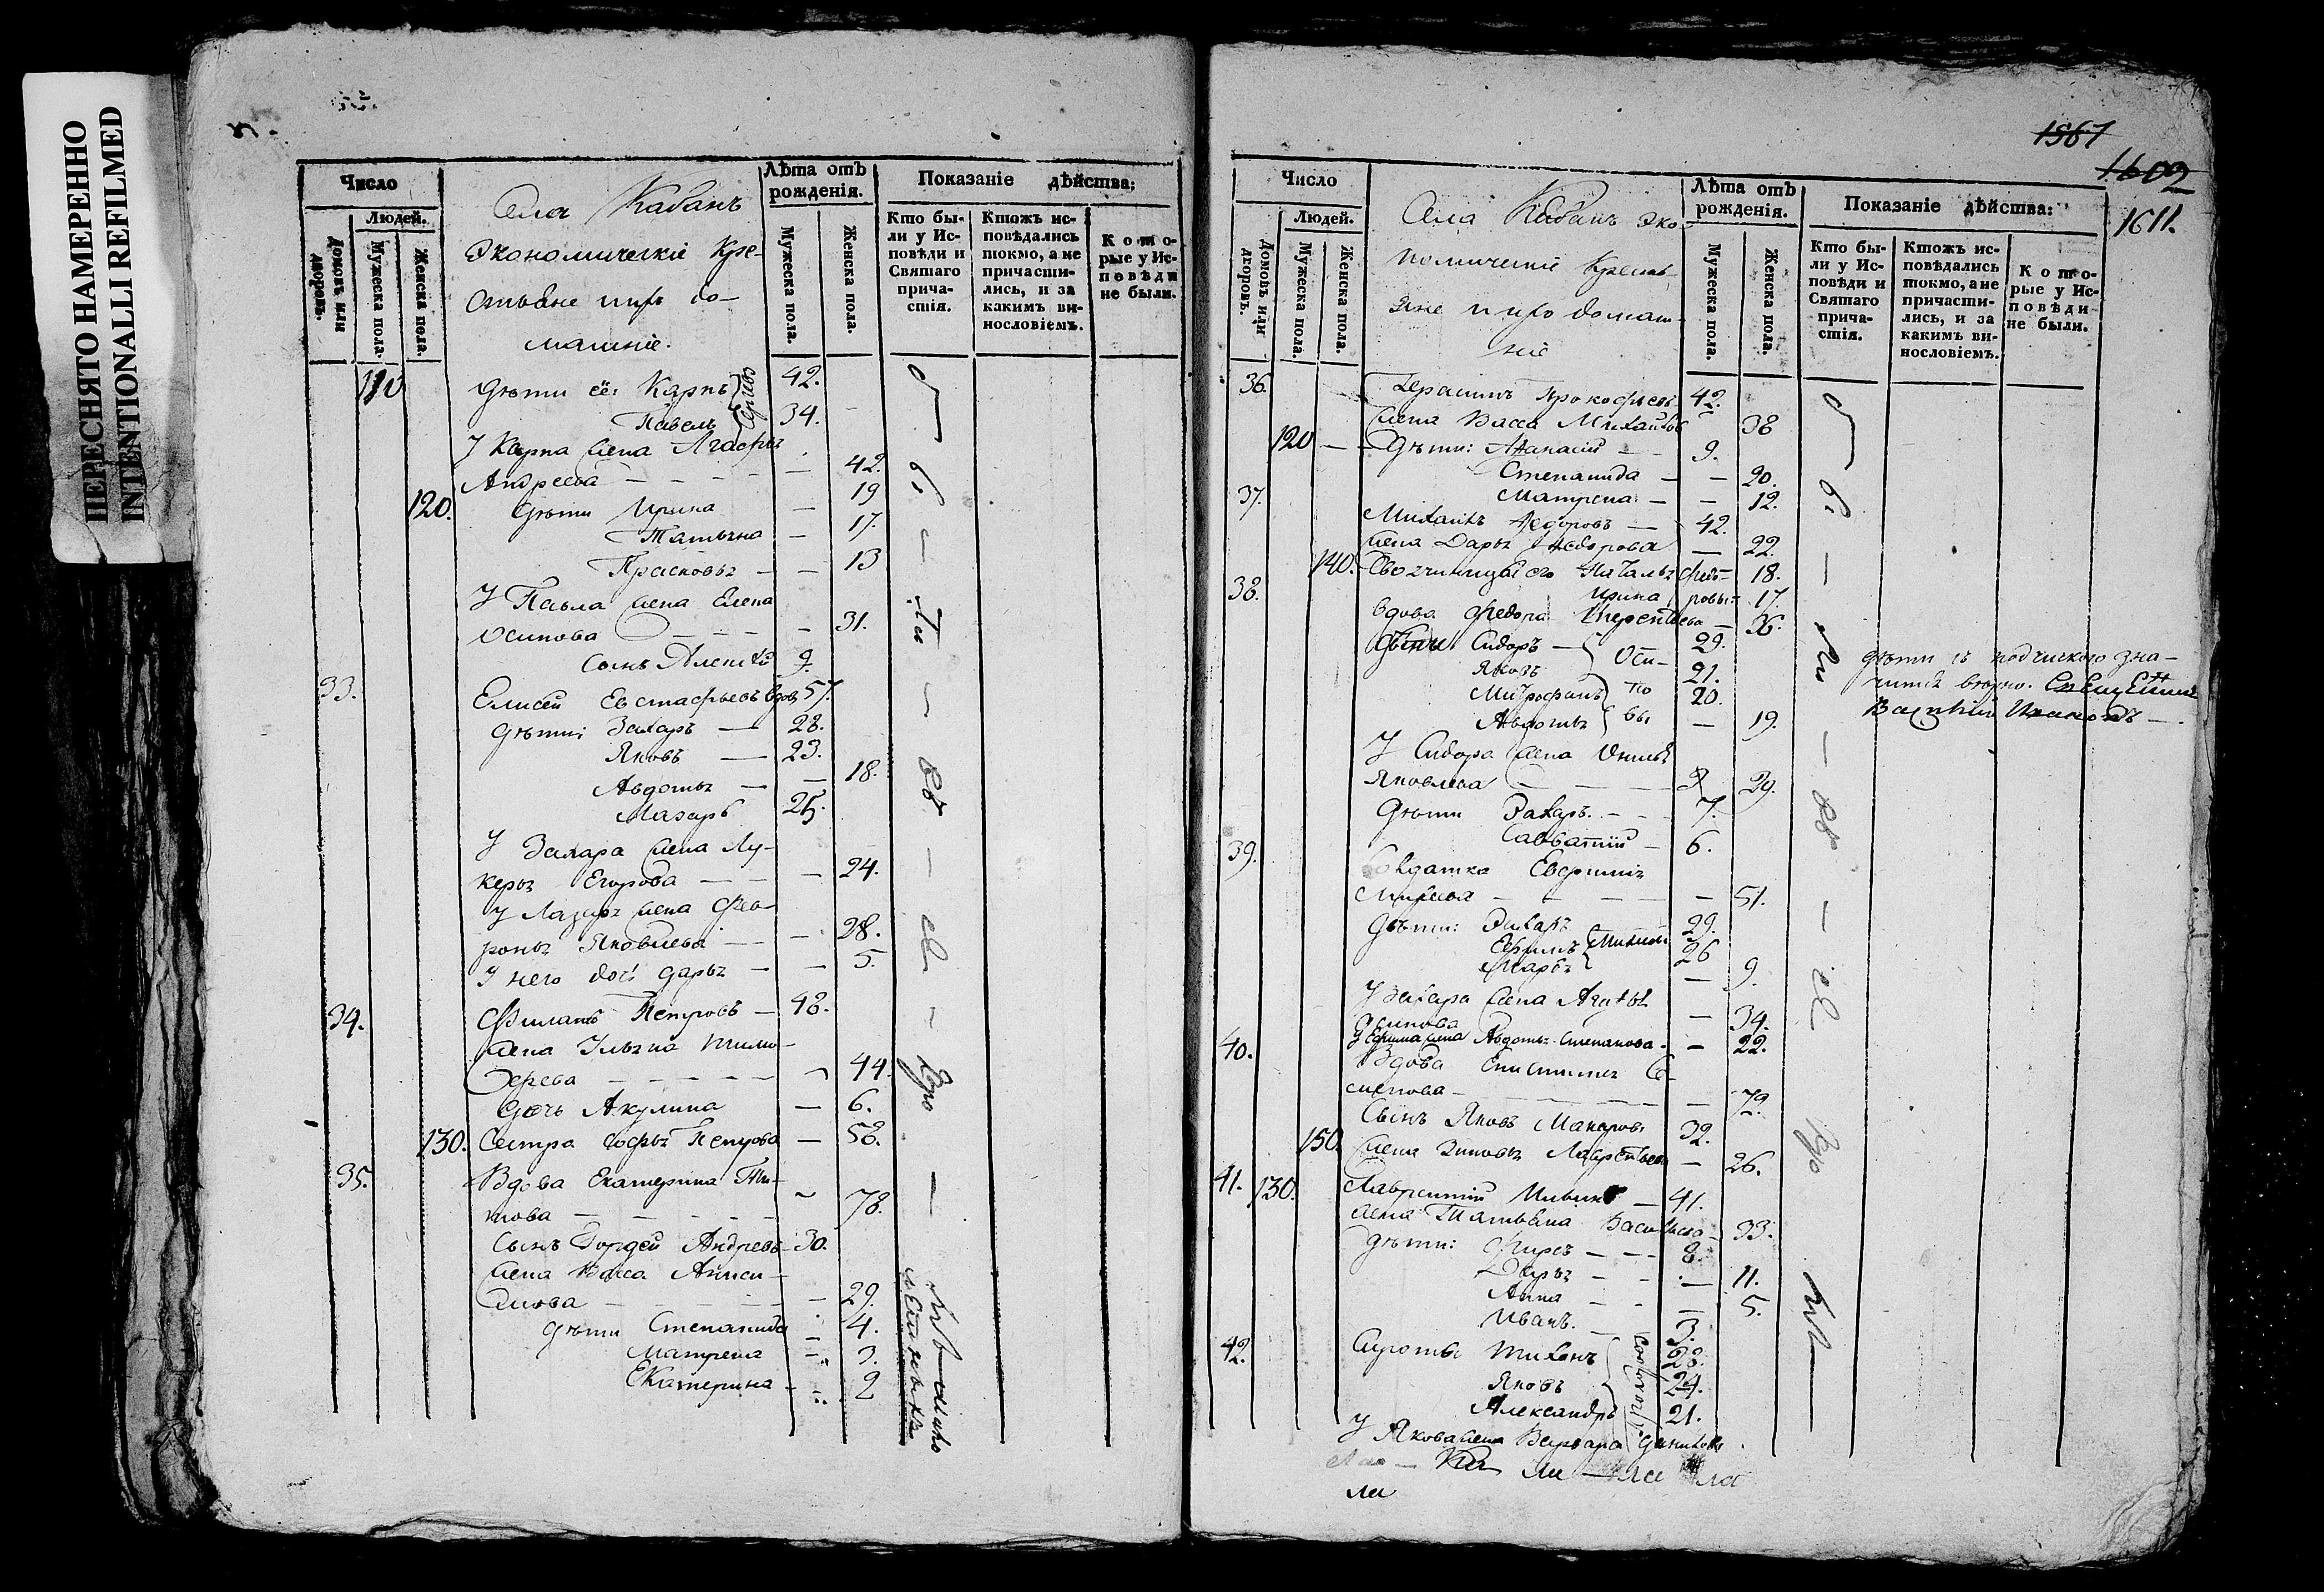 ПЕРЕСНЯТО НАМЕРЕННО
INTENTIONALLI REFILMED
Число
Людей.
Домовъ или дворовъ.
Мужеска пола.
Женска пола.
Села Кабанъ
Экономическіе Кре-
стьяне и ихъ до-
машніе.
Лѣта отъ рожденія.
Мужеска пола.
Женска пола.
Показаніе дѣйства:
Кто бы-
ли у Ис-
повѣди и
Святаго
прича-
стія.
Ктожъ ис-
повѣдались
токмо, а не
причасти-
лись, и за
какимъ ви-
нословіемъ.
Кото-
рые у Ис-
повѣди
не были.
110 Дѣти её: Карпъ 42.
Павелъ 34.
У Карпа жена Агафья
Андреева — 42.
120. Дѣти Ирина — 19
Татьяна — 17.
Прасковья — 13
У Павла жена Елена
Осипова — 31.
Сынъ Алексѣй 9.
33. Елисей Евстафьевъ вдов. 57.
Дѣти: Захаръ — 28.
Яковъ — 23.
Авдотья — 18.
Лазарь 25.
У Захара жена Лу-
керья Егорова — 24.
У Лазаря жена Фев-
ронья Яковлева — 28.
У него дочь Дарья — 5.
34. Филатъ Петровъ — 48.
Жена Ульяна Тимо-
феева — 44.
Дочь Акулина — 6.
130. Сестра Софья Петрова — 58.
35. Вдова Екатерина Ти-
това — 78.
Сынъ Гордей Андреевъ 30.
Жена Васса Аниси-
мова — 29.
Дѣти Степанида — 4.
Матрена — 3.
Екатерина — 2
1567
1602
1611.
Число
Людей.
Домовъ или дворовъ.
Мужеска пола.
Женска пола.
Села Кабанъ Эко-
номическіе Кресть-
яне и ихъ домаш-
ніе
Лѣта отъ рожденія.
Мужеска пола.
Женска пола.
Показаніе дѣйства:
Кто бы-
ли у Ис-
повѣди и
Святаго
прича-
стія.
Ктожъ ис-
повѣдались
токмо, а не
причасти-
лись, и за
какимъ ви-
нословіемъ.
Кото-
рые у Ис-
повѣди
не были.
36. Герасимъ Прокофьевъ 42.
Жена Васса Михайлов 38
120 — Дѣти: Афанасій — 9.
Степанида — 20.
Матрена — 12.
37. Михаилъ Федоровъ — 42.
Жена Дарья Федорова — 22.
140. Своячиницы его Наталья Федо- 18.
Ирина ровы 17.
38. Вдова Федора Терентьева —
Сидоръ — Оси- 29.
Яковъ 21.
Митрофанъ по 20.
Авдотья вы — 19.
У Сидора жена
Яковлева — 29.
Дѣти Захаръ — 7.
Савватій — 6.
39. Солдатка Евфимія
— 51.
Дѣти: Захаръ 29.
Ефимъ 26
Марья — 9.
У Захара жена Агафья
Осипова — 34.
У Ефима жена Авдотья Степанова — 22.
40. Вдова Епистимія Се-
менова — 72.
Сынъ Яковъ Макаровъ 32.
150. Жена Зиновья Лаврентьева — 26.
41. 130. Лаврентій — 41.
Жена Татьяна Васильева 33.
Дѣти: Фирсъ — 8.
Дарья — 11.
Анна — 5.
Иванъ. — 3.
42. Сироты Тихонъ 28.
Яковъ 24.
Александръ 21.
У Якова жена Варвара
дѣти съ подчискою зна-
чится вѣрно. Священникъ
Василій Ивановъ